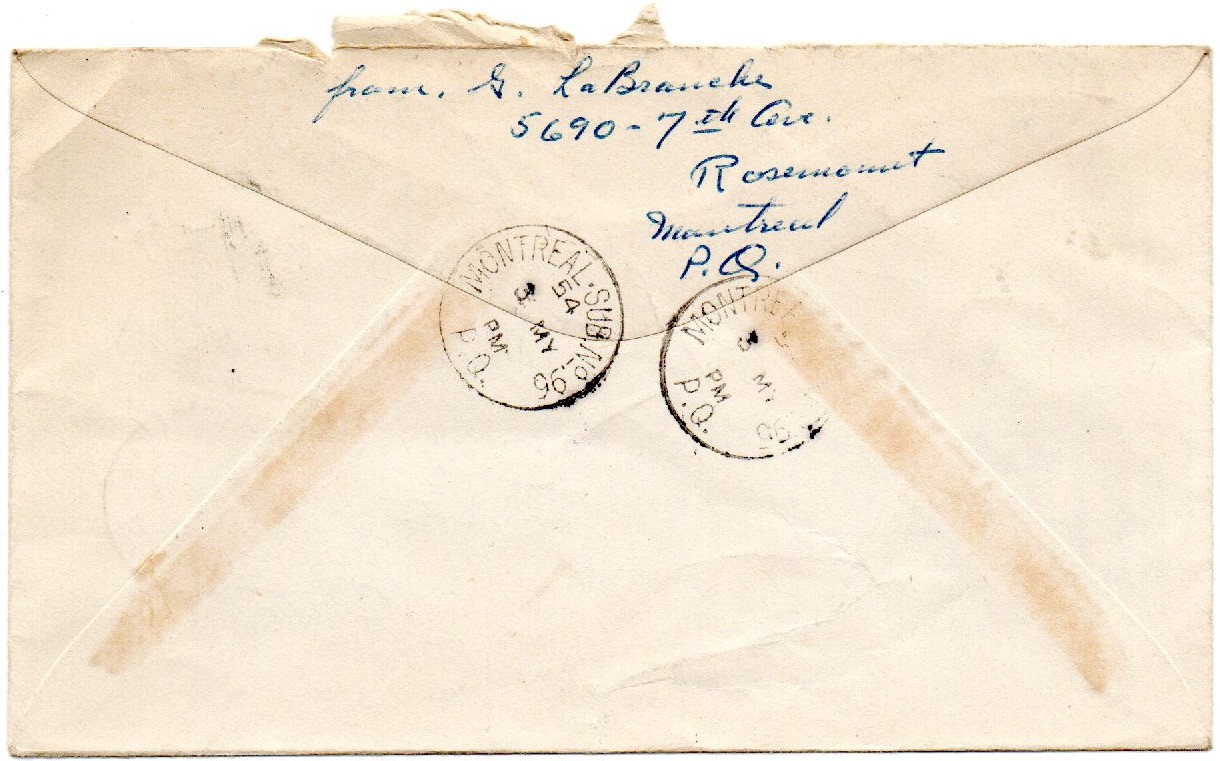 from. G. LaBranche
5690 - 7th Ave.
Rosemount
Montreal
P.Q.
MONTREAL. SUB. No. 96
3 MY 54
PM
P.Q.
MONTREA
3 MY
PM
96
P.Q.